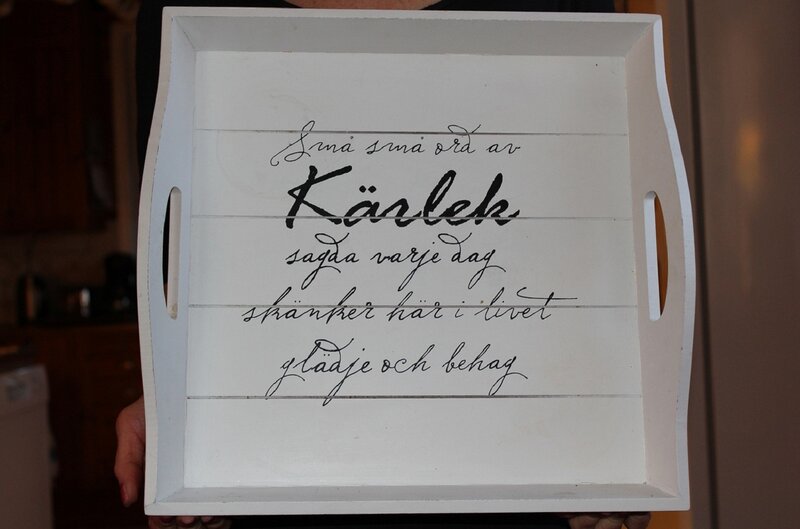 Små små ord av
Kärlek
sagda varje dag
skänker här i livet
glädje och behag